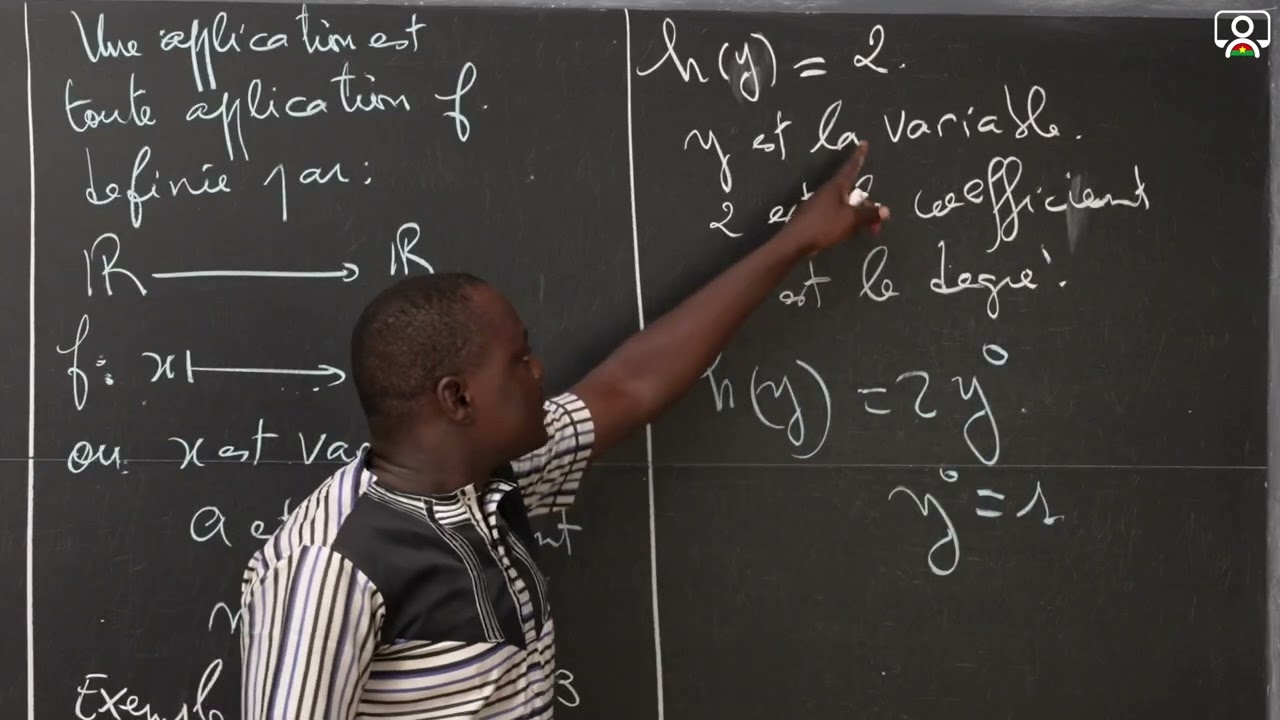 Une application est
toute application f.
definie par:
IR → IR
f: x ↦
ou x est va
a e nt
n
Exemple 3
h(y) = 2.
y est la variable.
2 est coefficient
est le degré.
h(y) = 2y⁰
y⁰ = 1